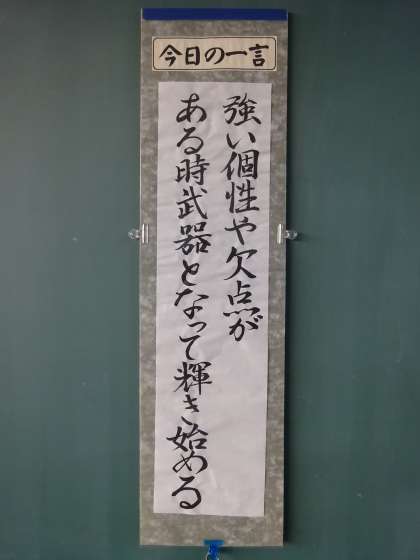 今日の一言
強い個性や欠点が
ある時武器となって輝き始める